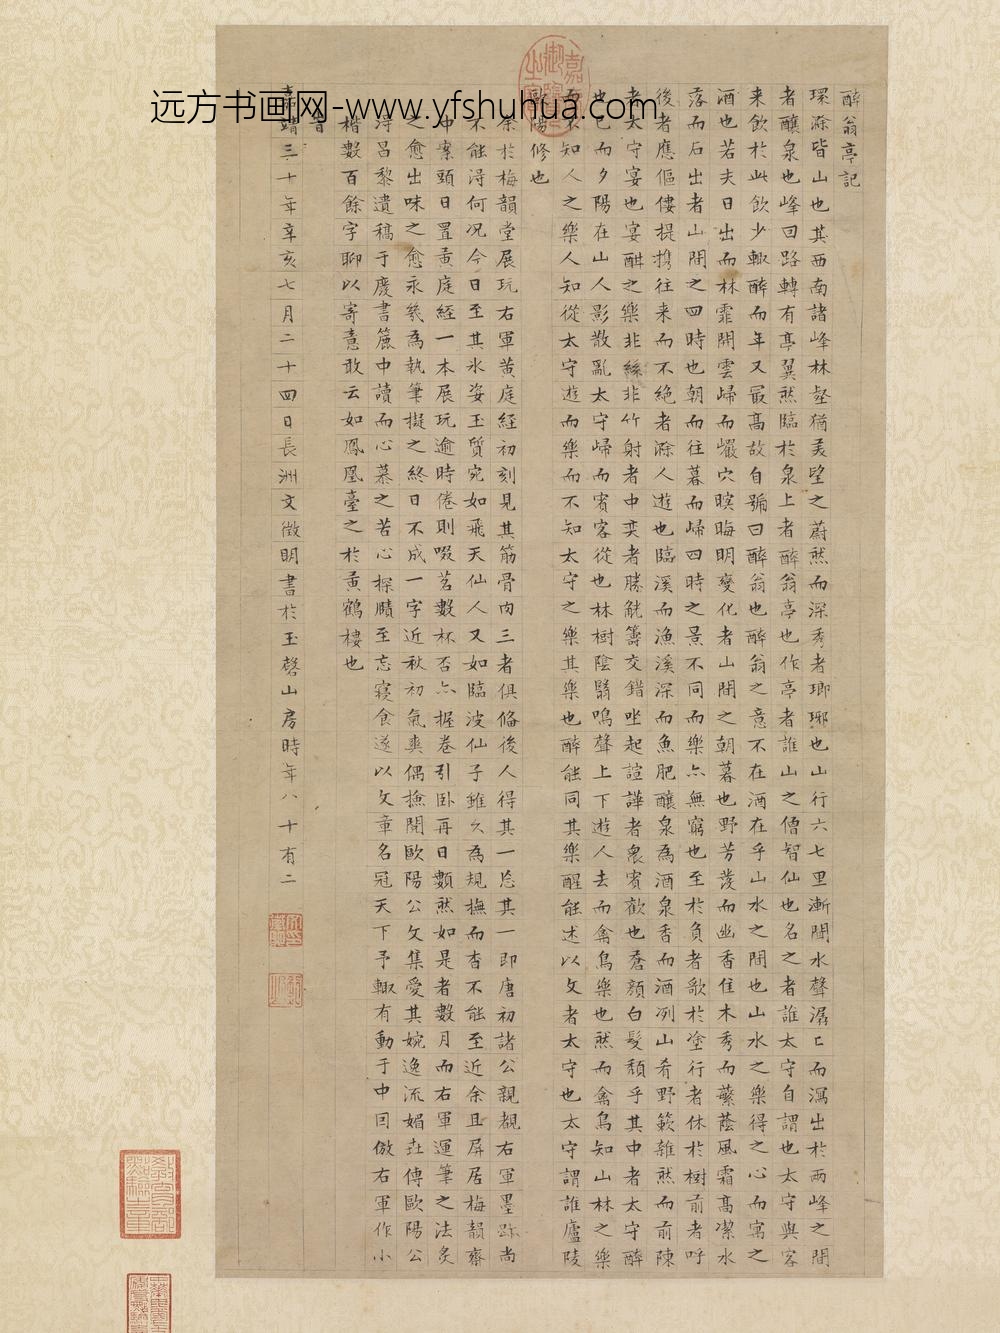 远方书画网-www.yfshuhua.com
醉翁亭記
環滁皆山也其西南諸峰林壑猶美望之蔚然而深秀者瑯琊也山行六七里漸聞水聲潺〻而瀉出於兩峰之間
者釀泉也峰回路轉有亭翼然臨於泉上者醉翁亭也作亭者誰山之僧智仙也名之者誰太守自謂也太守與客
来飲於此飲少輒醉而年又最高故自號曰醉翁也醉翁之意不在酒在乎山水之間也山水之樂得之心而寓之
酒也若夫日出而林霏開雲歸而巖穴暝晦明變化者山間之朝暮也野芳發而幽香佳木秀而蘩蔭風霜高潔水
落而石出者山間之四時也朝而往暮而歸四時之景不同而樂亦無窮也至於負者歌於塗行者休於樹前者呼
後者應傴僂提携往来而不絕者滁人遊也臨溪而漁溪深而魚肥釀泉為酒泉香而酒冽山肴野簌雜然而前陳
者太守宴也宴酣之樂非絲非竹射者中奕者勝觥籌交錯坐起諠譁者衆賓歡也蒼顏白髮頹乎其中者太守醉
也已而夕陽在山人影散亂太守歸而賓客從也林樹陰翳鳴聲上下遊人去而禽鳥樂也然而禽鳥知山林之樂
而不知人之樂人知從太守遊而樂而不知太守之樂其樂也醉能同其樂醒能述以文者太守也太守謂誰廬陵
歐陽修也
余於梅韻堂展玩右軍黄庭經初刻見其筋骨肉三者俱備後人得其一忘其一即唐初諸公親覩右軍墨跡尚
不能淂何况今日至其氷姿玉質宛如飛天仙人又如臨波仙子雖久為規撫而杳不能至近余且屏居梅韻齋
中案頭日置黄庭經一本展玩逾時倦則啜茗數杯否亦握卷引卧再日然如是者數月而右軍運筆之法炙
之愈出味之愈永幾為執筆擬之終日不成一字近秋初氣爽偶撿閱歐陽公文集愛其婉逸流媚世傳歐陽公
淂昌黎遺稿于慶書簏中讀而心慕之苦心探賾至忘寢食遂以文章名冠天下予輒有動于中因倣右軍作小
楷數百餘字聊以寄意敢云如鳳凰臺之於黄鶴樓也
旹
嘉靖三十年辛亥七月二十四日長洲文徵明書於玉磬山房時年八十有二